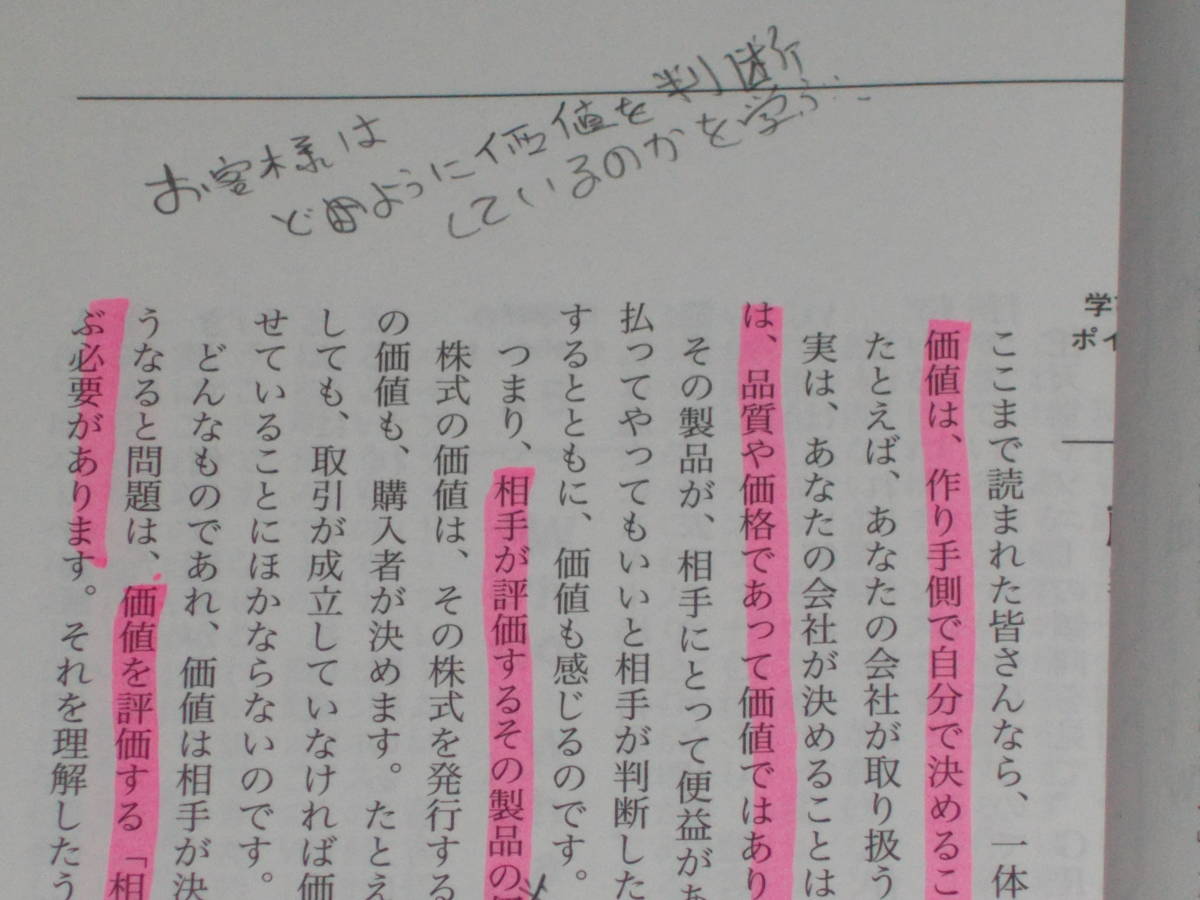 お客様は
どのように価値を判断
しているのかを学ぶ…
学
ポイ
ここまで読まれた皆さんなら、一体
価値は、作り手側で自分で決めるこ
たとえば、あなたの会社が取り扱う
実は、あなたの会社が決めることは
は、品質や価格であって価値ではあり
その製品が、相手にとって便益があ
払ってやってもいいと相手が判断した
するとともに、価値も感じるのです。
つまり、相手が評価するその製品の
株式の価値は、その株式を発行する
の価値も、購入者が決めます。たとえ
しても、取引が成立していなければ価
せていることにほかならないのです。
どんなものであれ、価値は相手が決
うなると問題は、価値を評価する「相
ぶ必要があります。それを理解したう